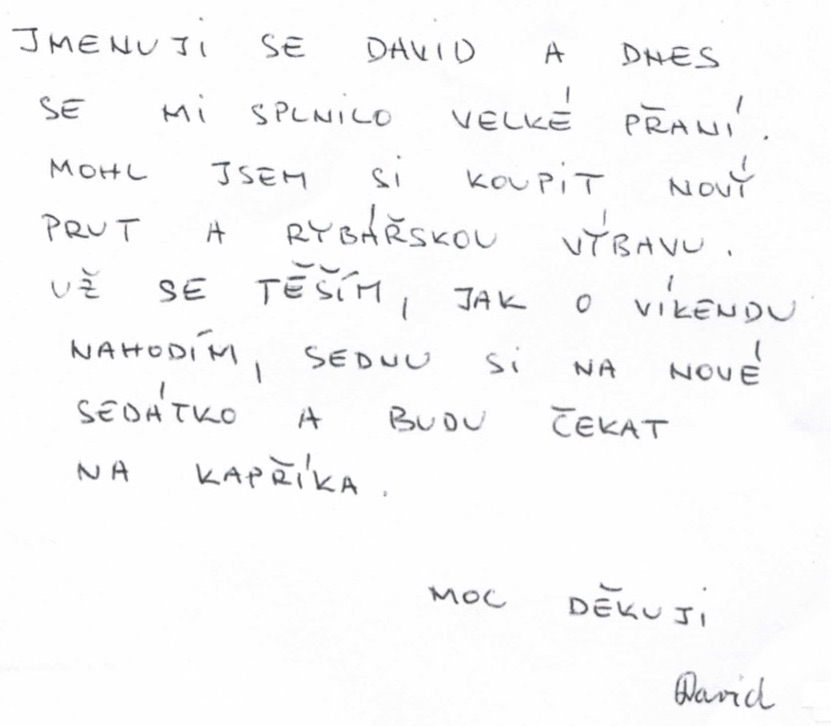 JMENUJI SE DAVID A DNES
SE Mi SPLNILO VELKÉ PŘANÍ.
MOHL JSEM Si KOUPiT NOVÝ
PRUT A RYBÁŘSKOU VÝBAVU.
UŽ SE TĚŠÍM, JAK O VÍKENDU
NAHODÍM, SEDNU Si NA NOVÉ
SEDÁTKO A BUDU ČEKAT
NA KAPŘÍKA.
MOC DĚKUJi
David